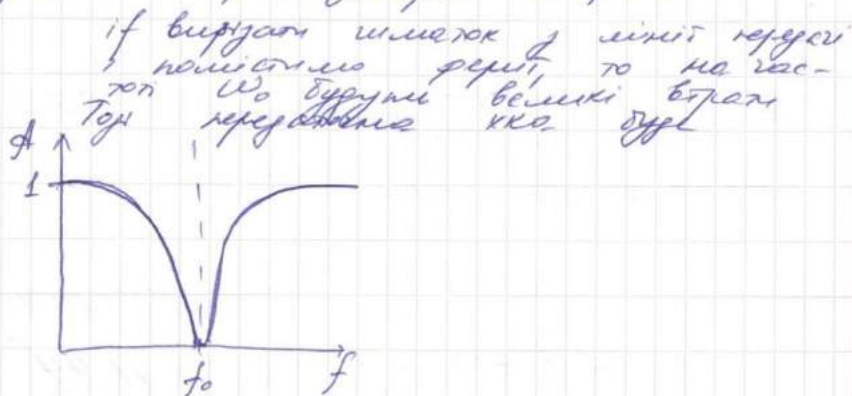 if вирізати шматок з лінії передачі
і помістимо ферит, то на час-
тоті ω₀ будуть великі втрати
Тоді передатна хка буде
A
1
f₀
f